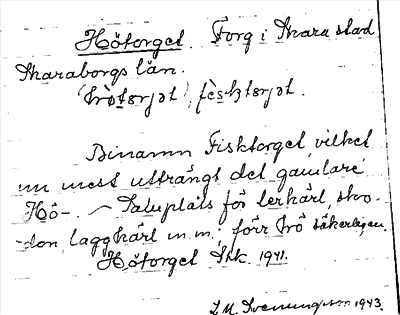 Hötorget. Torg i Skara stad
Skaraborgs län.
(hö̀tɘrjɘt), fèsktɘrjɘt.
Binamn Fisktorget, vilket
nu mest utträngt det gamlare
Hö-. ~ Saluplats för lerkärl, sko-
-don, laggkärl m.m.; förr hö säkerligen.
Hötorget Stk. 1941.
L. M. Svenungsson 1943.